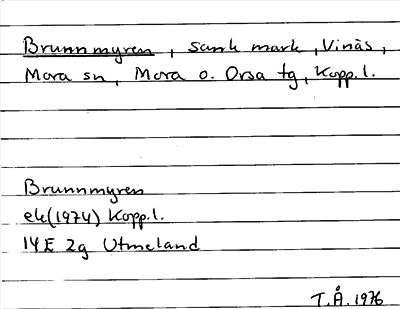 Brunnmyren, sank mark, Vinäs,
Mora sn, Mora o. Orsa tg, Kopp.l.
Brunnmyren
ek(1974) Kopp.l.
14E 2g Utmeland
T.Å. 1976